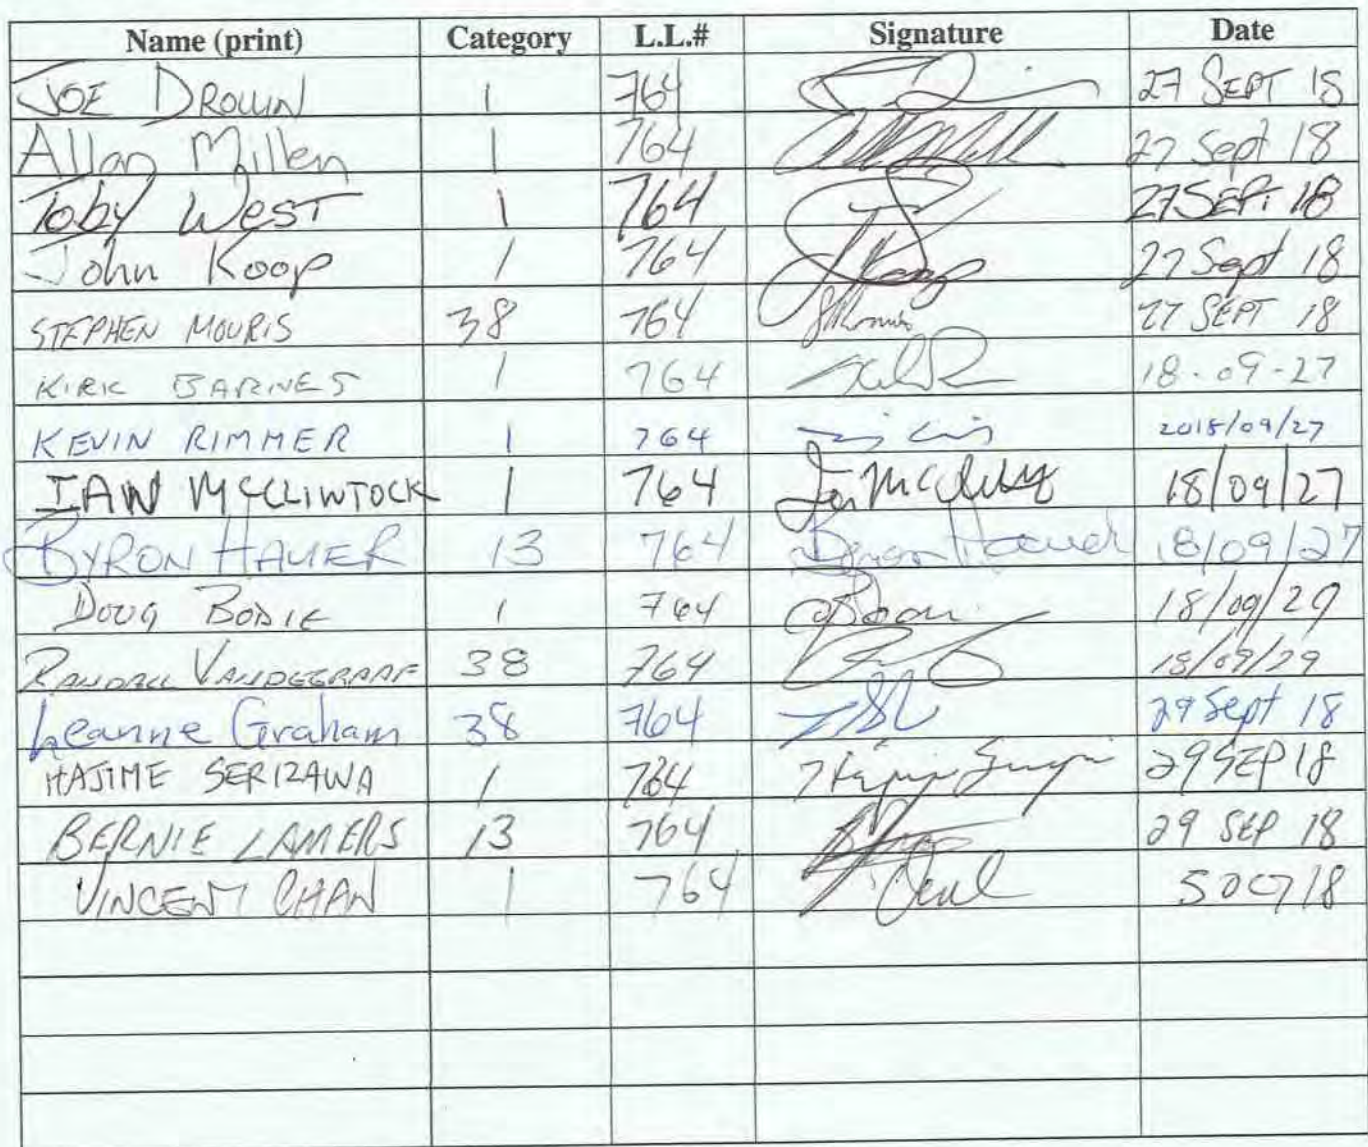 Name (print) Category L.L.# Signature Date
JOE DROUIN 1 764 27 SEPT 18
Allan Millen 1 764 27 Sept 18
Toby West 1 764 27 SEPT. 18
John Koop 1 764 27 Sept 18
STEPHEN MOURIS 38 764 27 SEPT 18
KIRK BARNES 1 764 18-09-27
KEVIN RIMMER 1 764 2018/09/27
IAN MCCLINTOCK 1 764 18/09/27
BYRON HAUER 13 764 Byron Hauer 18/09/27
DOUG BODIE 1 764 18/09/29
RANDALL VANDEGRAAF 38 764 18/09/29
Leanne Graham 38 764 29 Sept 18
HAJIME SERIZAWA 1 764 29 SEP 18
BERNIE LAMERS 13 764 29 SEP 18
VINCENT CHAN 1 764 5 OCT 18